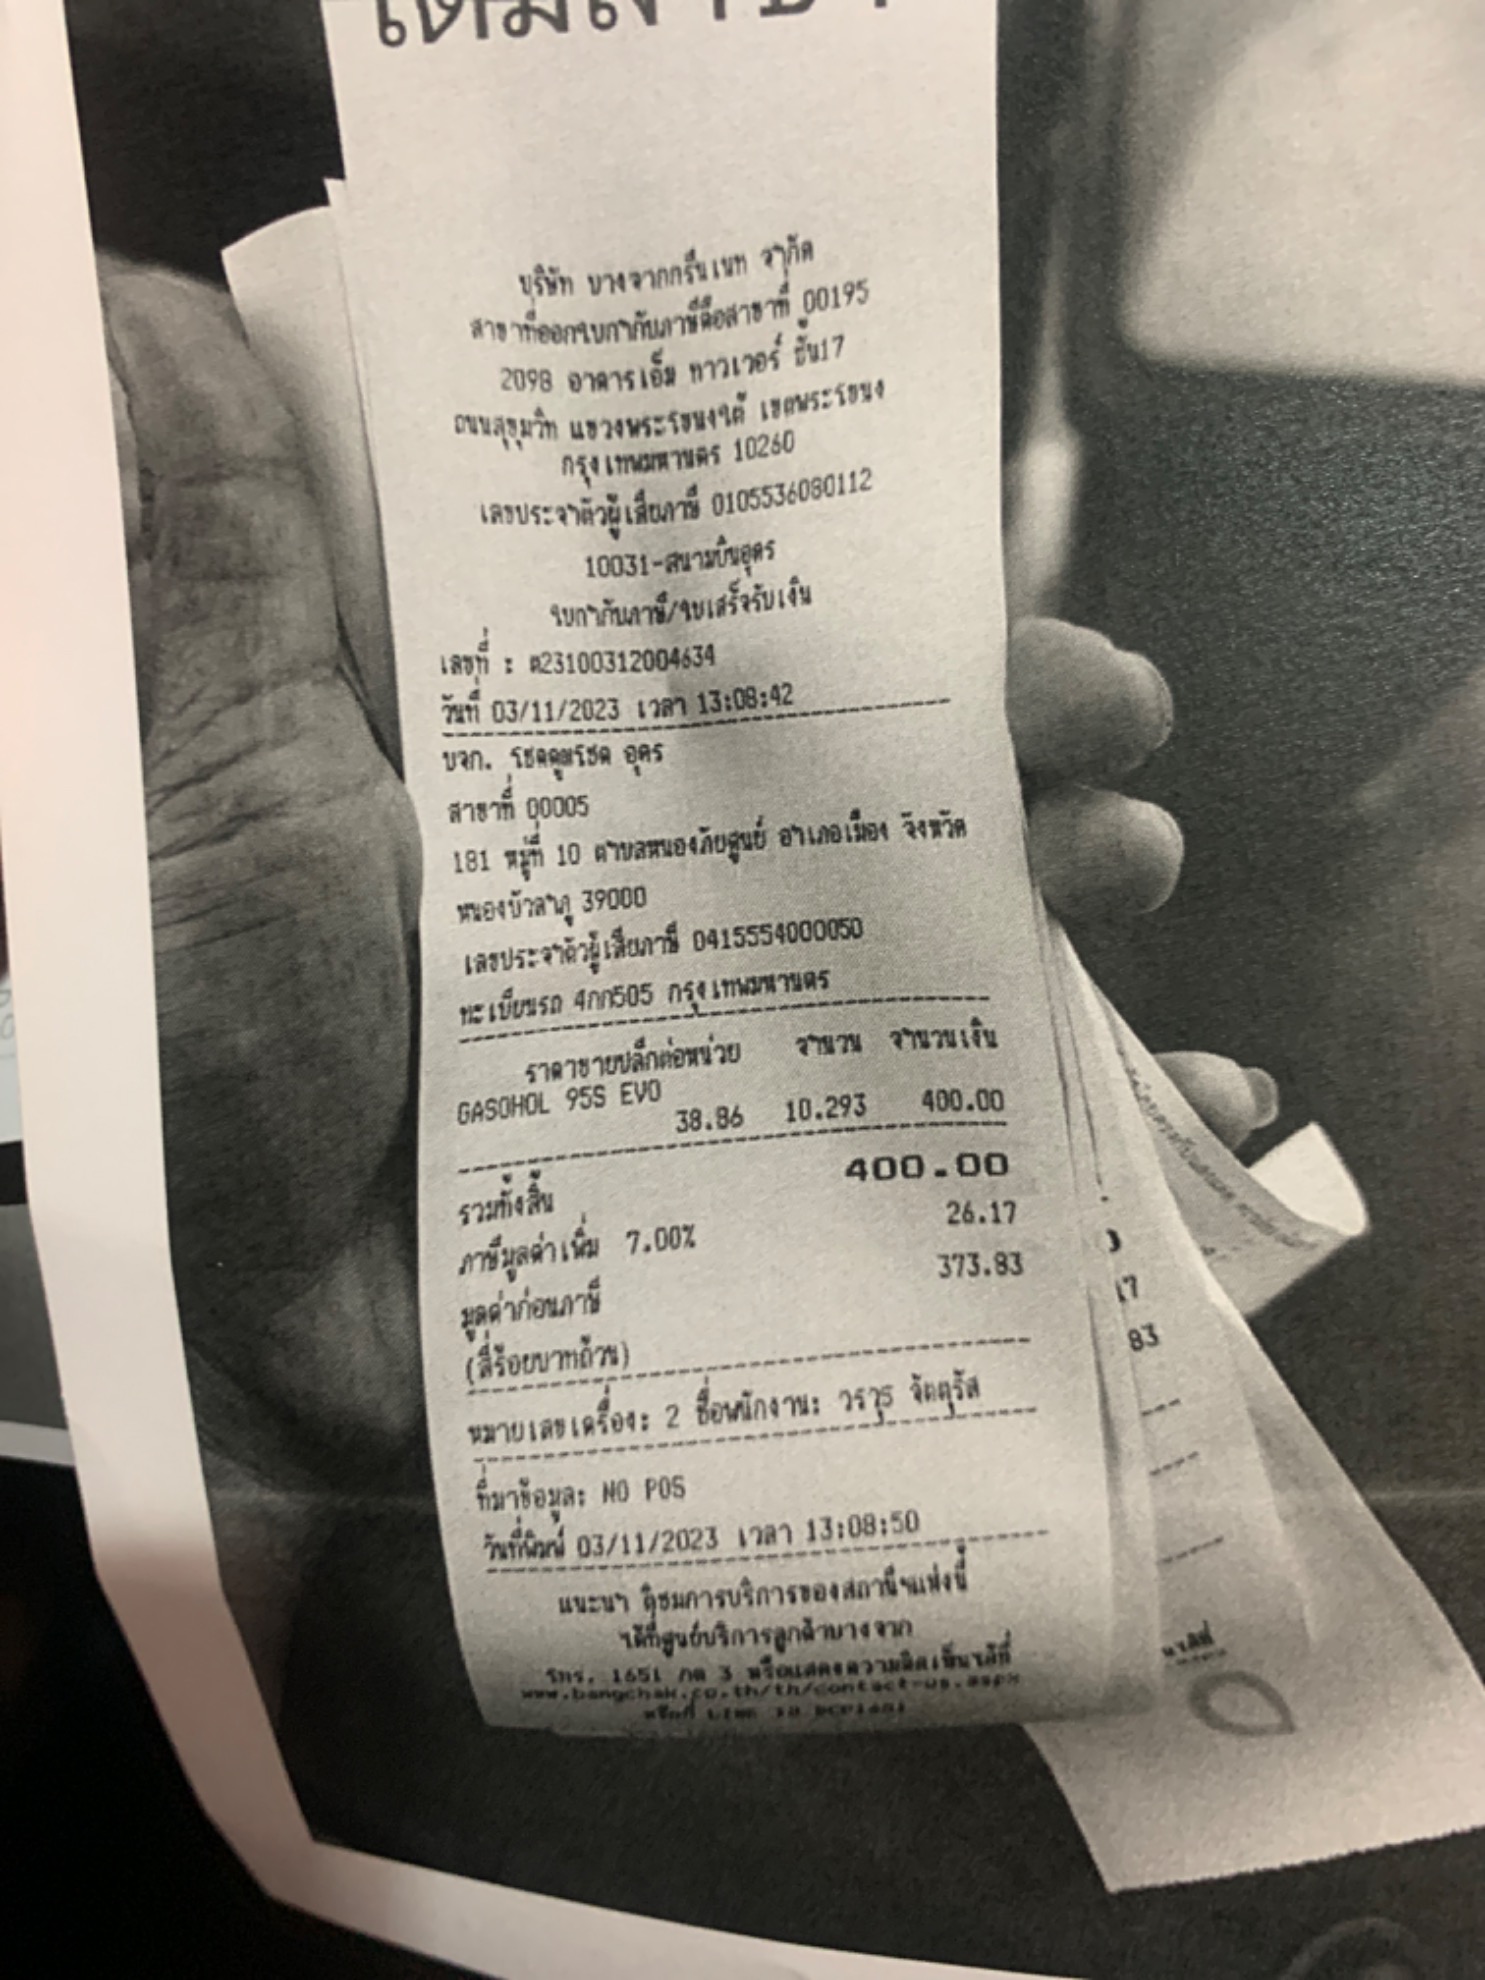 บริษัท บางจากกรีนเนท จำกัด
สาขาที่ออกใบกำกับภาษีคือสาขาที่ 00195
2098 อาคารเอ็ม ทาวเวอร์ ชั้น17
ถนนสุขุมวิท แขวงพระโขนงใต้ เขตพระโขนง
กรุงเทพมหานคร 10260
เลขประจำตัวผู้เสียภาษี 0105536080112
10031-สนามบินอุดร
ใบกำกับภาษี/ใบเสร็จรับเงิน
เลขที่ : ต23100312004634
วันที่ 03/11/2023 เวลา 13:08:42
บจก. โชคคูมโชค อุดร
สาขาที่ 00005
181 หมู่ที่ 10 ตำบลหนองภัยศูนย์ อำเภอเมือง จังหวัด
หนองบัวลำภู 39000
เลขประจำตัวผู้เสียภาษี 0415554000050
ทะเบียนรถ 4กก505 กรุงเทพมหานคร
ราคาขายปลีกต่อหน่วย จำนวน จำนวนเงิน
GASOHOL 95S EVO
38.86 10.293 400.00
รวมทั้งสิ้น 400.00
ภาษีมูลค่าเพิ่ม 7.00% 26.17
มูลค่าก่อนภาษี 373.83
(สี่ร้อยบาทถ้วน)
หมายเลขเครื่อง: 2 ชื่อพนักงาน: วรวุธ จัตตุรัส
ที่มาข้อมูล: NO POS
วันที่พิมพ์ 03/11/2023 เวลา 13:08:50
แนะนำ ติชมการบริการของสถานีฯแห่งนี้
ได้ที่ศูนย์บริการลูกค้าบางจาก
โทร. 1651 กด 3 หรือแสดงความคิดเห็นได้ที่
www.bangchak.co.th/th/contact-us.aspx
17
83